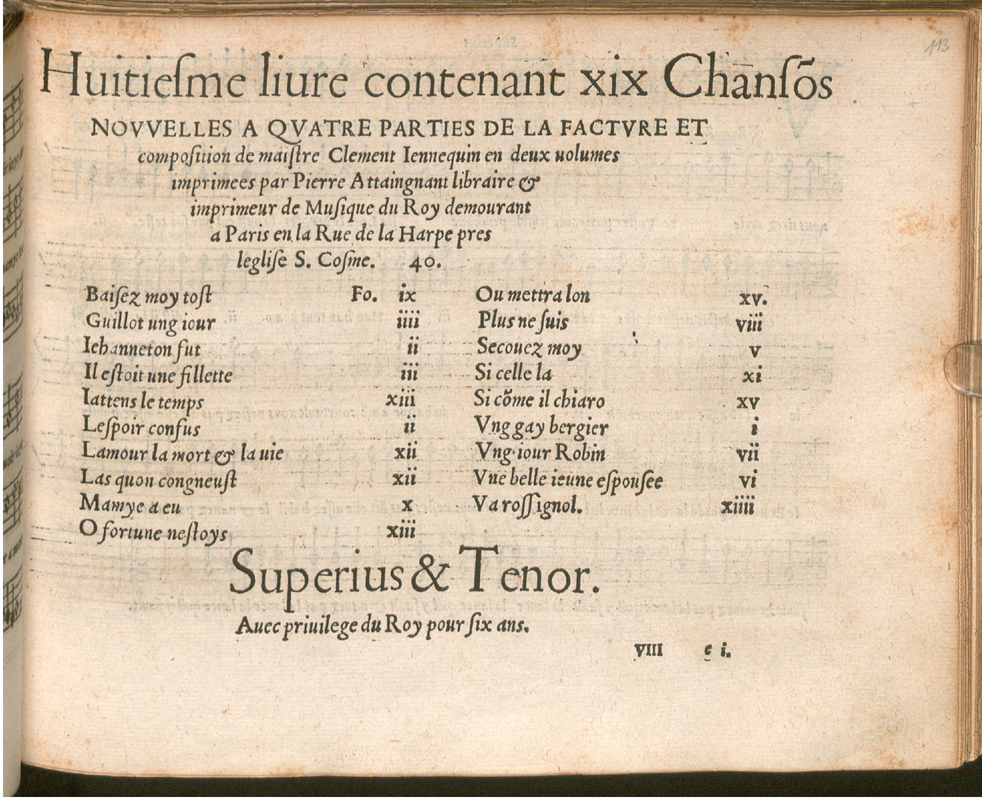 113
Huitieſme liure contenant xix Chanſõs
NOVVELLES A QVATRE PARTIES DE LA FACTVRE ET
compoſition de maiſtre Clement Iennequin en deux uolumes
imprimees par Pierre Attaingnant libraire &
imprimeur de Muſique du Roy demourant
a Paris en la Rue de la Harpe pres
legliſe S. Coſme. 40.
Baiſez moy toſt Fo. ix
Guillot ung iour iiii
Iehanneton fut ii
Il eſtoit une fillette iii
Iattens le temps xiii
Leſpoir confus ii
Lamour la mort & la uie xii
Las quon congneuſt xii
Mamye a eu x
O fortune neſtoys xiii
Ou mettra lon xv.
Plus ne ſuis viii
Secouez moy v
Si celle la xi
Si cõme il chiaro xv
Vng gay bergier i
Vng iour Robin vii
Vne belle ieune eſpouſee vi
Va roſſignol. xiiii
Superius & Tenor.
Auec priuilege du Roy pour ſix ans.
VIII c i.